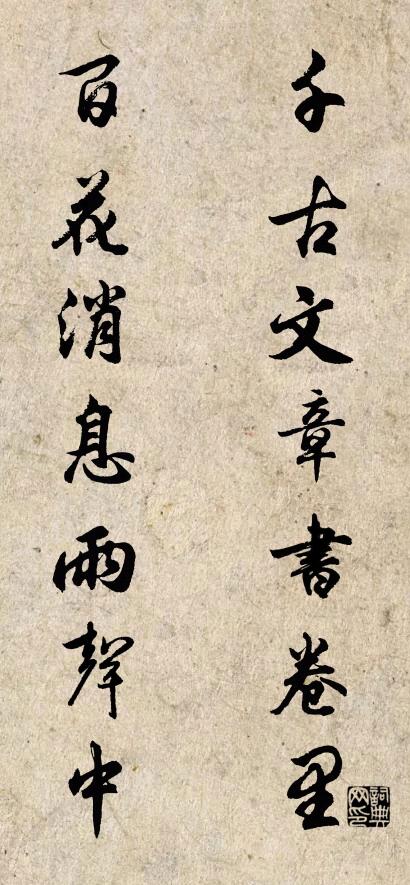 千古文章書卷里
百花消息雨聲中
詞典網印